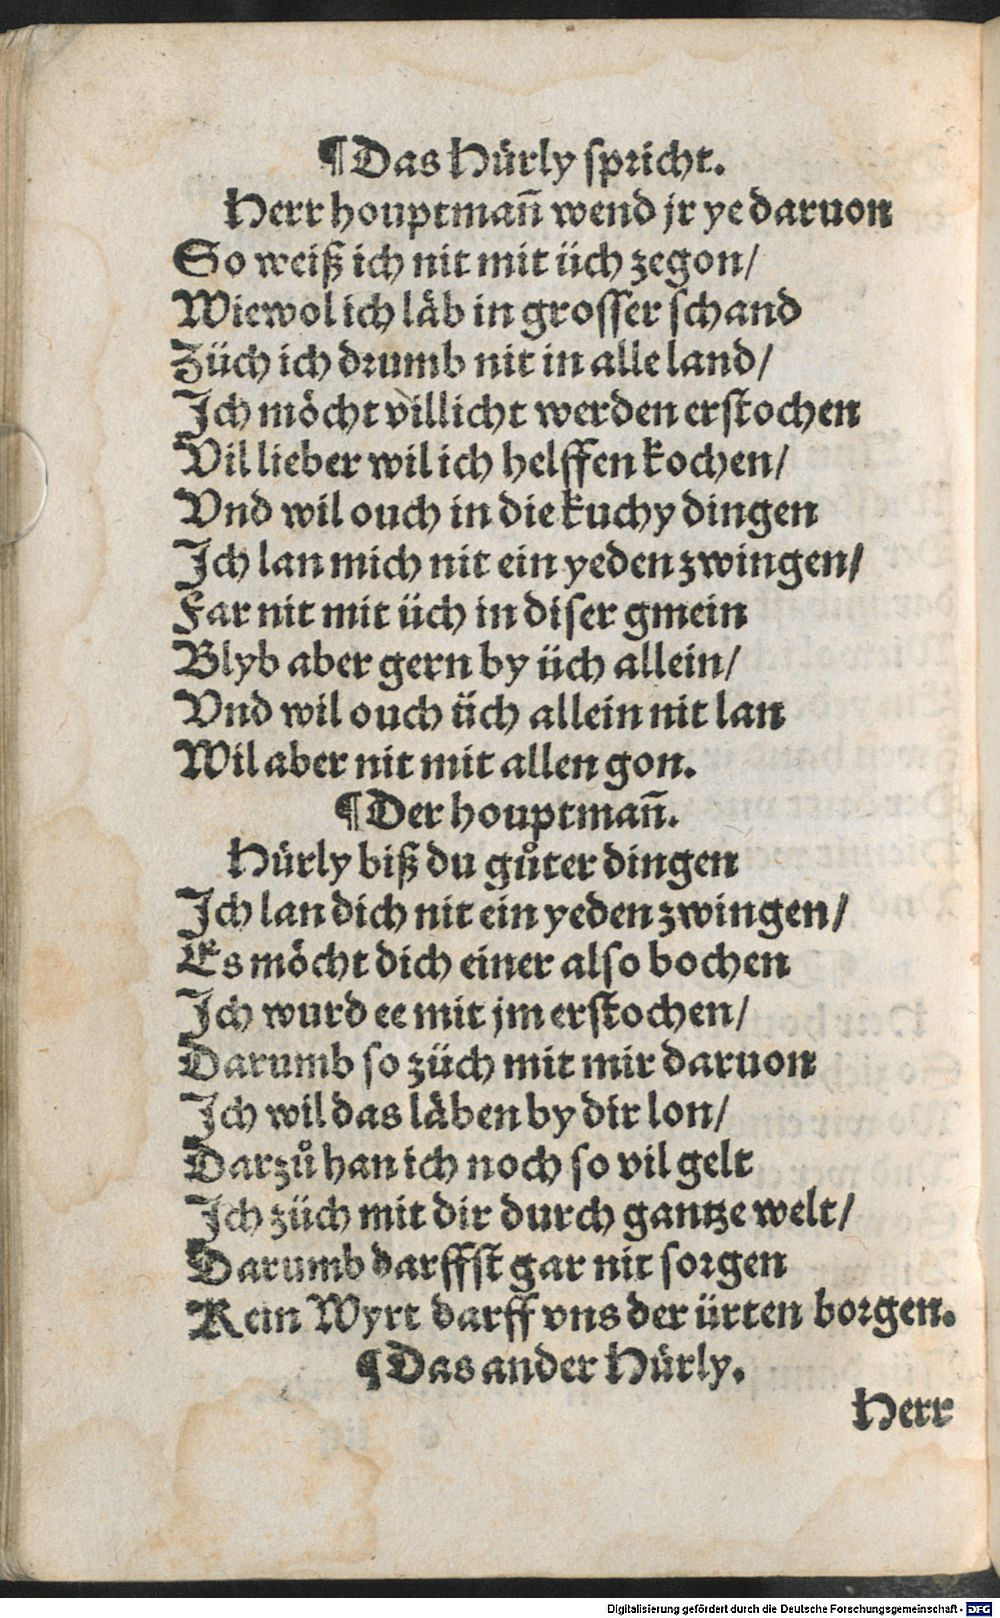 ¶Das Hürly spricht.
Herr houptmañ wend jr ye daruon
So weiß ich nit mit üch zegon/
Wiewol ich läb in grosser schand
Züch ich drumb nit in alle land/
Ich möcht villicht werden erstochen
Vil lieber wil ich helffen kochen/
Vnd wil ouch in die kuchy dingen
Ich lan mich nit ein yeden zwingen/
Far nit mit üch in diser gmein
Blyb aber gern by üch allein/
Vnd wil ouch üch allein nit lan
Wil aber nit mit allen gon.
¶Der houptmañ.
Hürly biß du gůter dingen
Ich lan dich nit ein yeden zwingen/
Es möcht dich einer also bochen
Ich wurd ee mit jm erstochen/
Darumb so züch mit mir daruon
Ich wil das läben by dir lon/
Darzů han ich noch so vil gelt
Ich züch mit dir durch gantze welt/
Darumb darffst gar nit sorgen
Kein Wyrt darff vns der ürten borgen.
¶Das ander Hürly.
Herr
Digitalisierung gefördert durch die Deutsche Forschungsgemeinschaft - DFG